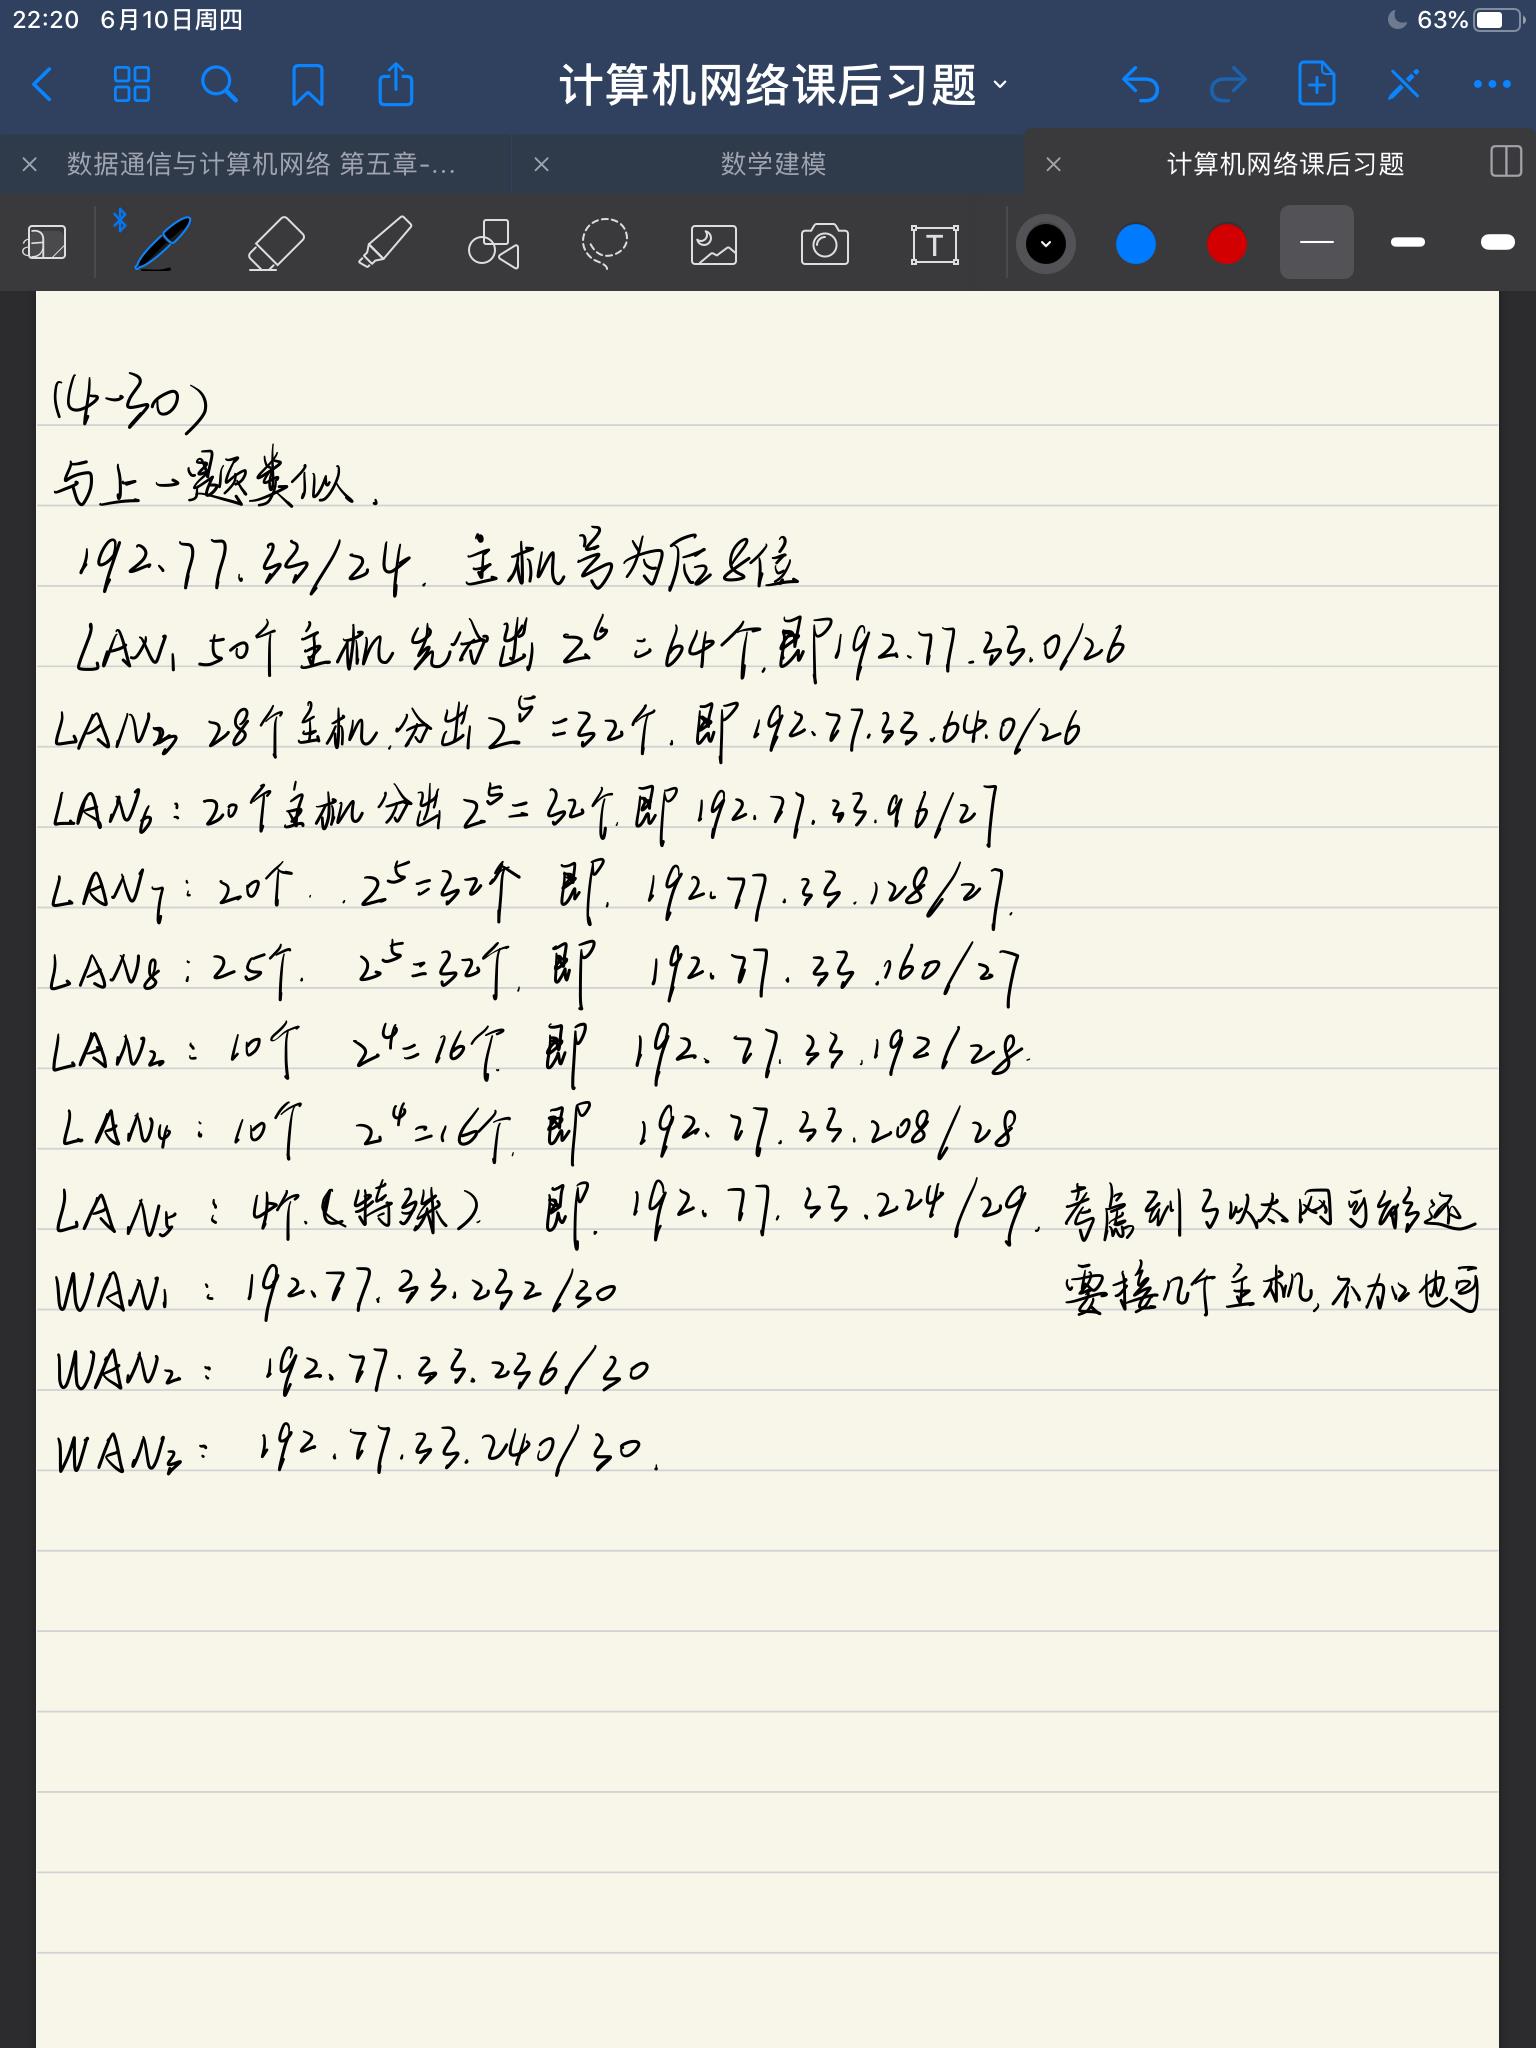 22:20 6月10日周四
63%
计算机网络课后习题
数据通信与计算机网络 第五章-...
数学建模
计算机网络课后习题
T
(4-30)
与上一题类似.
192.77.33/24. 主机号为后8位
LAN1 50个主机 先分出 2^6=64个.即192.77.33.0/26
LAN3 28个主机.分出2^5=32个.即192.77.33.64.0/26
LAN6:20个主机分出2^5=32个.即192.77.33.96/27
LAN7:20个..2^5=32个 即.192.77.33.128/27.
LAN8:25个. 2^5=32个.即 192.77.33.160/27
LAN2:10个 2^4=16个.即 192.77.33.192/28.
LAN4:10个 2^4=16个.即 192.77.33.208/28
LAN5:4个.(特殊). 即.192.77.33.224/29. 考虑到了以太网可能还
WAN1:192.77.33.232/30 要接几个主机,不加也可
WAN2:192.77.33.236/30
WAN3:192.77.33.240/30.